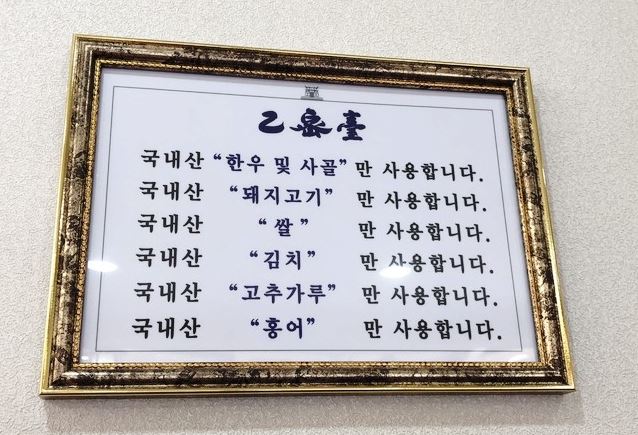 乙密臺
국내산 “한우 및 사골” 만 사용합니다.
국내산 “돼지고기” 만 사용합니다.
국내산 “쌀” 만 사용합니다.
국내산 “김치” 만 사용합니다.
국내산 “고추가루” 만 사용합니다.
국내산 “홍어” 만 사용합니다.